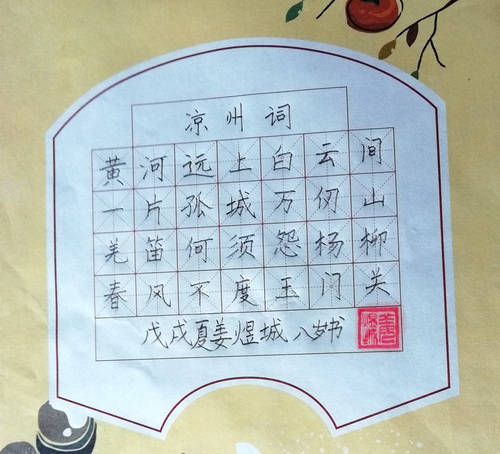 凉州词
黄河远上白云间
一片孤城万仞山
羌笛何须怨杨柳
春风不度玉门关
戊戌夏姜煜城八岁书